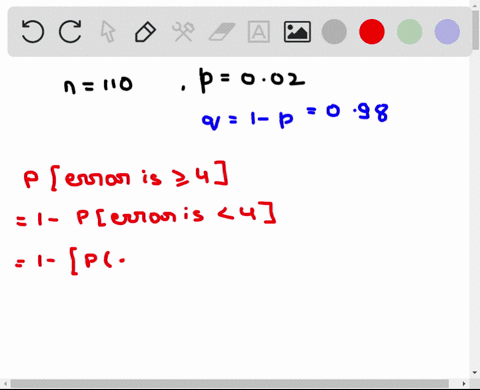 n = 110 , p = 0.02
q = 1 - p = 0.98
P [error is ≥ 4]
= 1 - P [error is < 4]
= 1 - [P( .